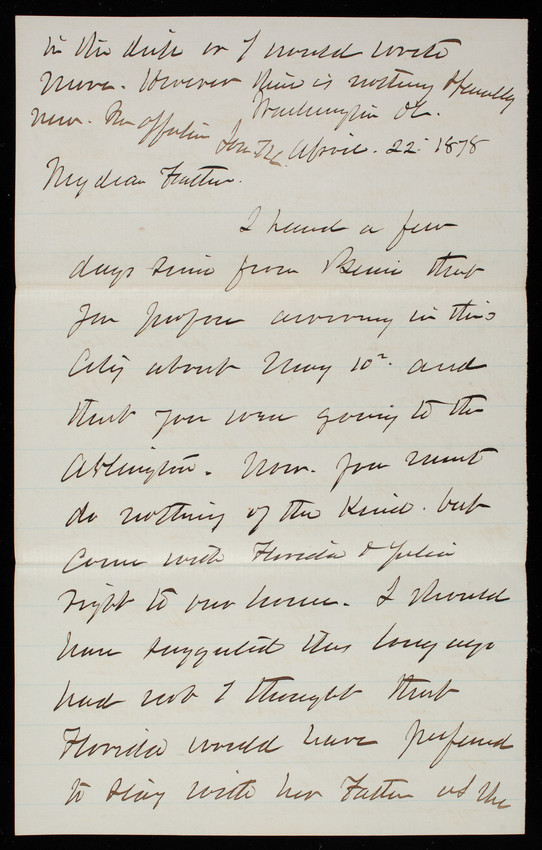 in the desk or I would write
more. However there is nothing especially
new. Yr affectn Son TLC.
Washington DC.
April. 22d 1878
My dear Father.
I heard a few
days since from Bernie that
you propose arriving in this
City about May 10th and
that you were going to the
Arlington. Now. you must
do nothing of the kind. but
come with Florida & Julia
right to our home. I should
have suggested this long ago
had not I thought that
Florida would have prefered
to stay with her Father at the